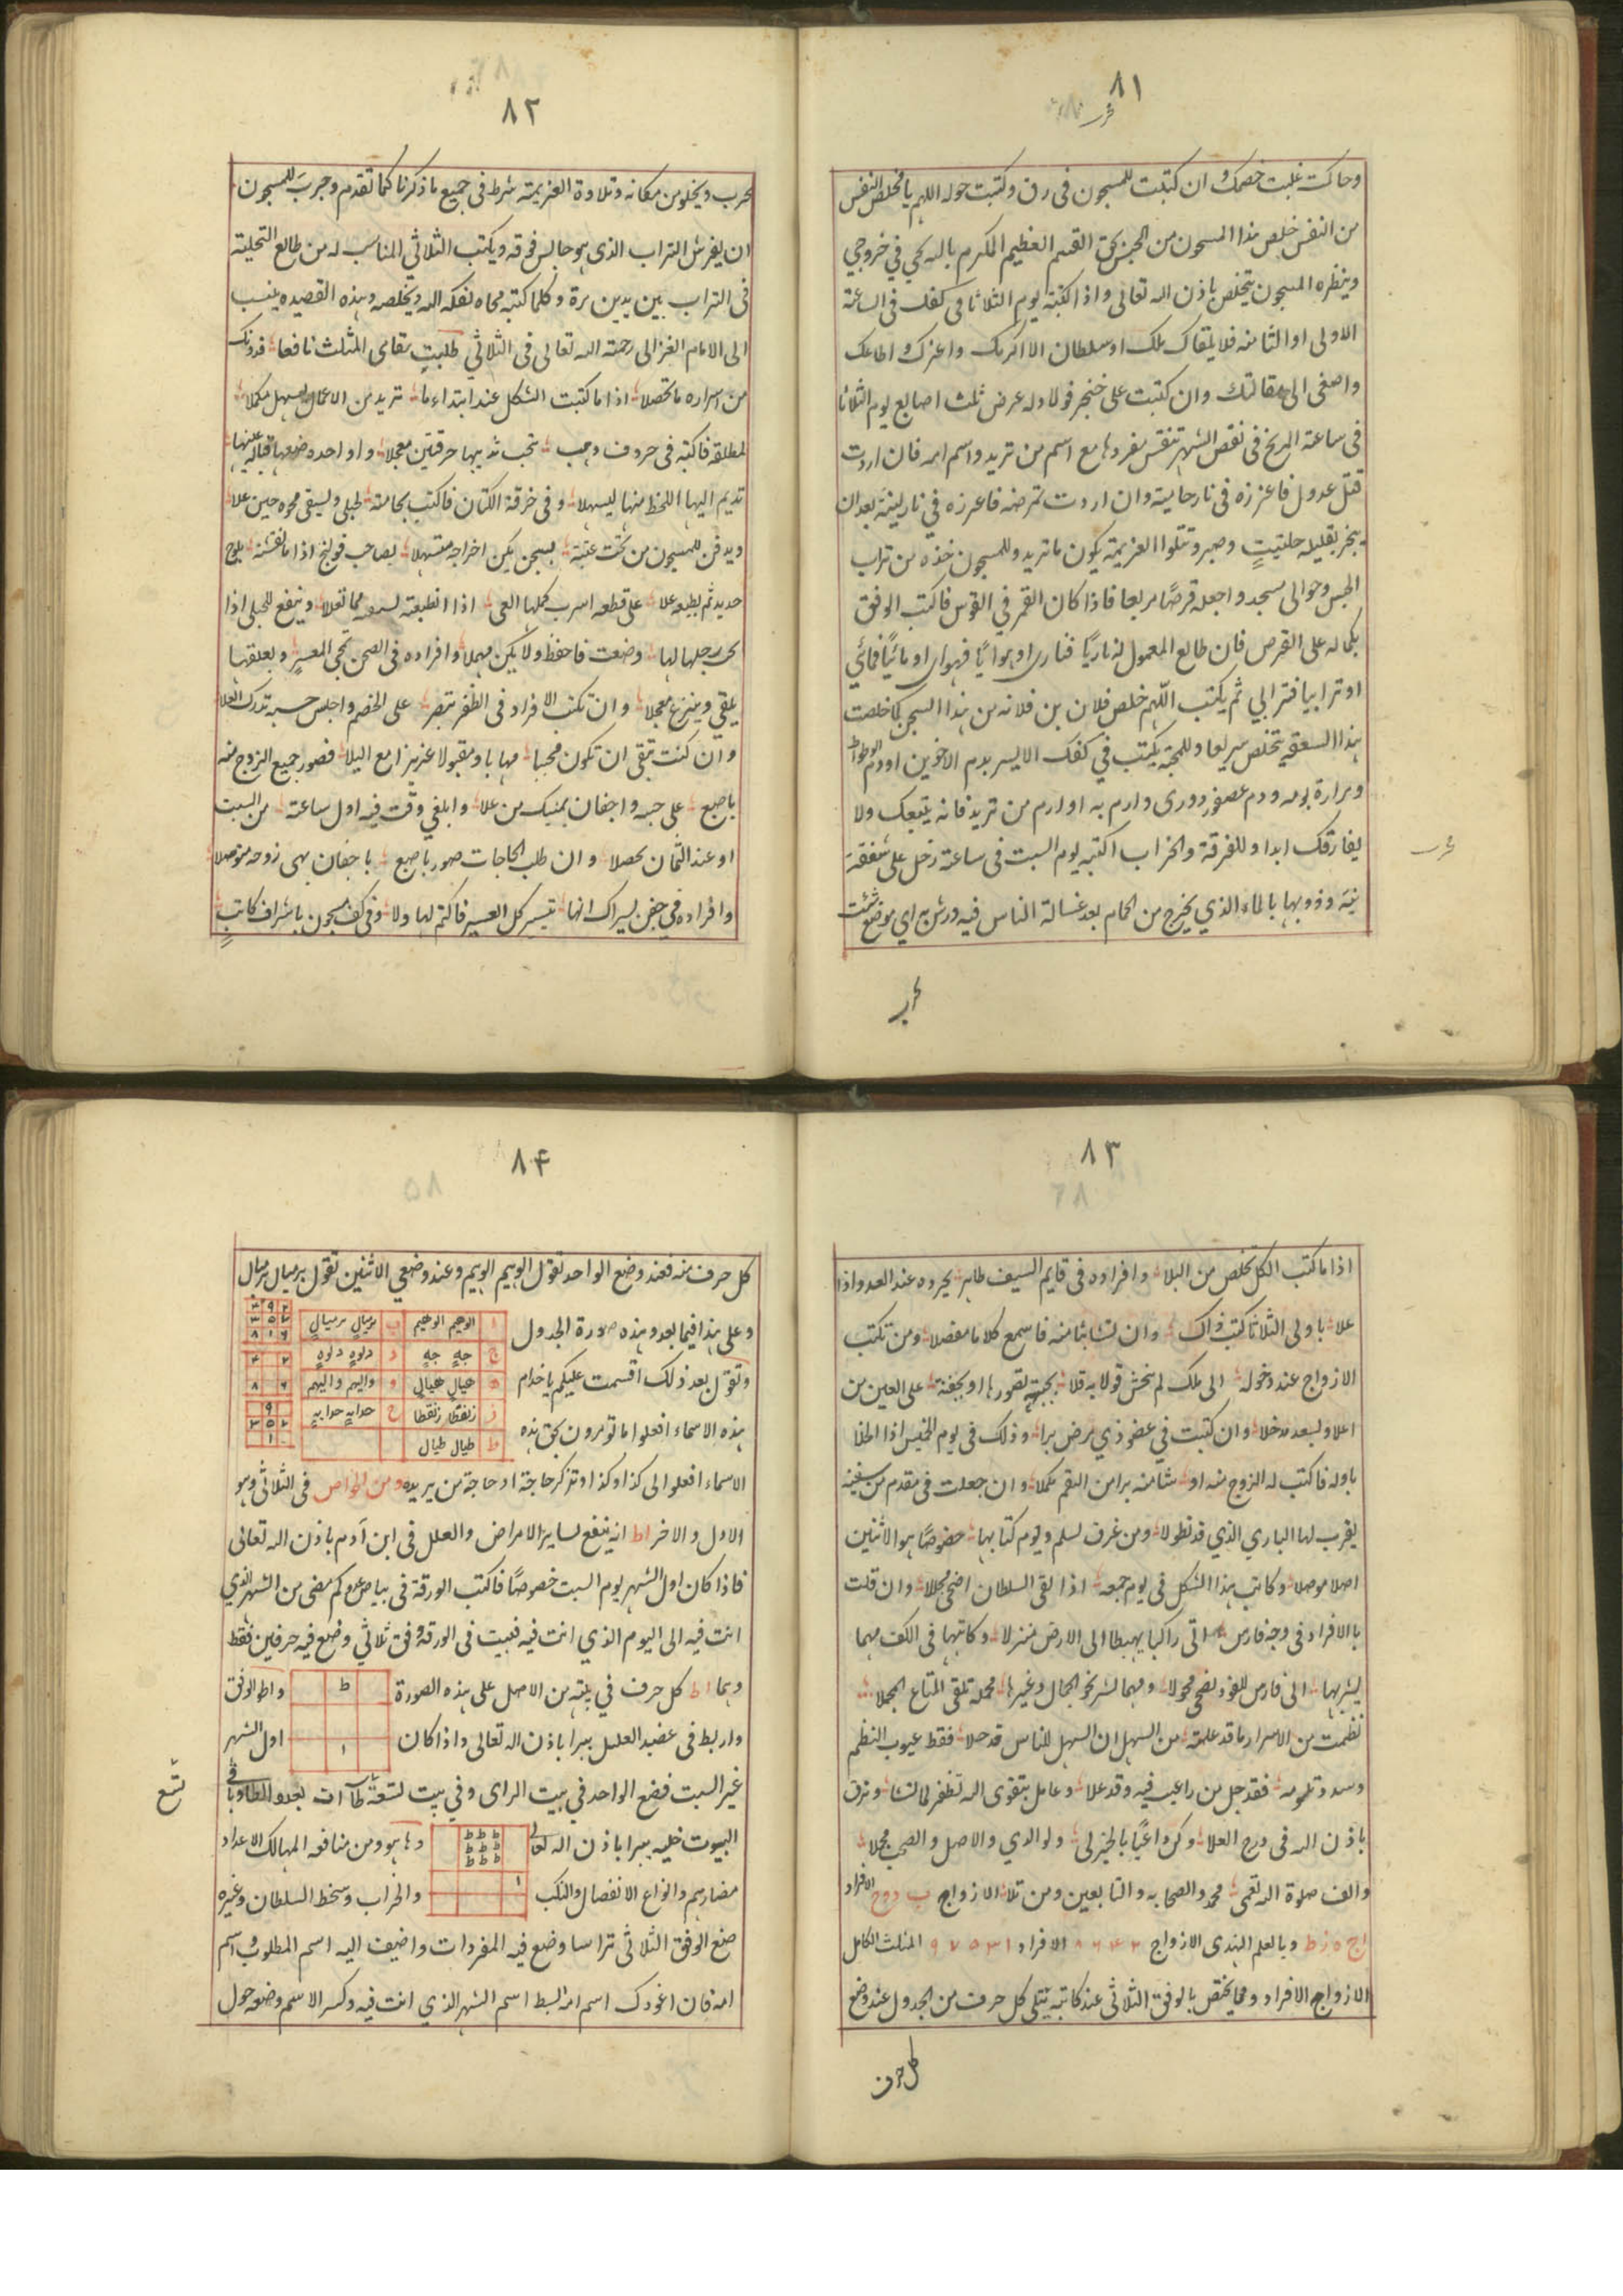 ٨١
وحاكمت غلبت خصمك وان كتبت للمسجون في رق وكتبت حوله اللهم يا مخلص النفس
من النفس خلص هذا المسجون من السجن بحق القسم العظيم المكرم بالله يحي في خروجي
وينظره المسجون يتخلص باذن الله تعالى واذا كتبته يوم الثلاثا في كفك في الساعة
الاولى او الثامنه فلا يلقاك ملك او سلطان الا اكرمك واعزك واطاعك
واصغى الى مقالتك وان كتبت على خنجر فولاد له عرض ثلث اصابع يوم الثلاثا
في ساعة المريخ في نقص الشهر تنقش مفردها مع اسم من تريد واسم امه فان اردت
قتل عدو فاغرزه في نار حامية وان اردت تمرضه فاغرزه في نار لينة بعد ان
يبخر بقليله حلتيت وصبر وتتلوا العزيمة يكون ما تريد وللمسجون خذه من تراب
الحبس وحوالى مسجد واجعله قرصًا مربعا فاذا كان القمر في القوس فاكتب الوفق
بكماله على القرص فان طالع المعمول له ناريًا فناري او هوائيًا فهواى او مائيًا فمائي
او ترابيا فترابي ثم يكتب اللهم خلص فلان بن فلانه من هذا السجن كما خلصت
هذا السعقم يتخلص سريعا وللمحبة يكتب في كفك الايسر بدم الاخوين او دم الوطواط
ومرارة بومه ودم عصفور دوري وارم به او ارم من تريد فانه يتبعك ولا
يفارقك ابدا وللفرقة والخراب اكتبه يوم السبت في ساعة زحل على شقفة
نية وذوبها بالماء الذي يخرج من الحمام بعد غسالة الناس فيه ورش به اي موضع شئت
٨٢
يخرب ويخلو من مكانه وتلاوة العزيمة شرط في جميع ما ذكرنا كما تقدم وجرب للمسجون
ان يفرش التراب الذي هو جالس فوقه ويكتب الثلاثي المناسب له من طالع التحلية
في التراب بين يديه مرة وكلما كتبه محاه يفكه الله ويخلصه وهذه القصيده ينسب
الى الامام الغزالى رحمة الله تعالى في الثلاثي طلبت بقاى المثلث نافعا فدونك
من اسراره ما تحصلا اذا ما كتبت الشكل عند ابتداء ما تريد من الاعمال يسهل مكملا
لمطلقة فاكتبه في حروف وجب تحب ثديها حرقتين معجلا
تديم اليها اللحظ منها ليسهلا وفي خرقة الكتان فاكتب بحامة لحبلى ويسقى محوه حين علا
ويدفن للمسجون من تحت عتبة بسجن يكن اخراجه متسهلا لصاحب قولنج اذا ما نقشته بلوح
حديد ثم يطبعه علا على قطعه اسرب كملها العى اذا انطبعته وينفع للحبلى اذا
وضعت فاحفظ ولا يكن مهملا وافراده في الصحن تمحى المعسر ويعلقها
يلقي وينزع معجلا وان تكتب الافراد في الظفر تنصر على الخصم واجلس حيث تدرك العلا
وان كنت تبقى ان تكون محببا مهابا ومقبولا عزيزا مع الملا فصور جميع الزوج منه
باصبع على جبه واجفان يمنيك من علا وابلغي وقت فيه اول ساعة من السبت
او عند الثمان تحصلا وان طلب الحاجات صور باصبع باجفان يمنى زوجه متوصلا
وافراده في جفن يسراك انها تيسير كل العسير فاكتم لها ولا وفي كف مسجون باشراف كاتب
٨٣
اذا ما كتب الكل تخلص من البلا وافراده في قايم السيف طاهر يجرده عند العدو اذا
علا باولى الثلاثا كتب ذاك وان تشا بثامنه فاسمع كلاما مفصلا ومن تكتب
الازواج عند دخوله الى ملك لم يخش قولا به قلا بجبهته يصورها او بجفنة على العين من
اعلا ويسعد مدخلا وان كتبت في عضو ذي مرض برا وذلك في يوم الخميس اذا انجلا
باوله فاكتب له الزوج منه او بثامنه برا من السقم مكملا وان جعلت في مقدم من سفينه
يقرب لها الباري الذي قد تطولا ومن غرق تسلم ويوم كتابها خصوصًا هو الاثنين
اصلا موصلا وكاتب هذا الشكل في يوم جمعه اذا لقى السلطان اضحى مجللا وان قلت
بالافراد في وجه فارس اتى راكبا يهبط الى الارض منزلا وكاتبها في الكف مهما
يشير بها الى فارس للغزو يضحى مخولا ومهما تشير نحو الجمال وغيرها محملة تلقى المتاع المجملا
نظمت من الاسرار ما قد علمته من السهل ان السهل للناس قد حلا فقط عيوب النظم
وسدد تلومه فقد جل من راعيب فيه وقد علا وعامل بتقوى الله تظفر لما تشا وترق
باذن الله في درج العلا وكن داعيًا بالخير لي ولوالدي والاصل والصحب مجملا
والف صلوة الله تغشى محمد والصحابه والتابعين ومن تلا الازواج ب د و ح الافراد
ا ج ه ز ط وبالعلم الهندى الازواج ٢ ۴ ٦ ٨ الافراد ١ ٣ ٥ ٧ ٩ المثلث الكامل
الازواج الافراد ومما يختص بالوفق الثلاثي عند كاتبه يتلى كل حرف من الجدول عند وضع
كل حرف
٨۴
كل حرف منه فعند وضع الواحد تقول الوهيم الوهيم وعند وضعي الاثنين تقول برميال برميال
وعلى هذا فيما بعد وهذه صورة الجدول
ا الوهيم الوهيم ب برميال برميال
ج جه جه د دلوه دلوه
ه هيال هيالي و واليهم واليهم
ز زنقطا زنقطا ح حدابه حدابه
ط طيال طيال
وتقول بعد ذلك اقسمت عليكم يا خدام
هذه الاسماء افعلوا ما تومرون بحق هذه
الاسماء افعلوا الى كذا وكذا وتذكر حاجة او حاجة من يريده ومن الخواص في الثلاثي وهو
الاول والاخر اط انه ينفع لساير الامراض والعلل في ابن آدم باذن الله تعالى
فاذا كان اول الشهر يوم السبت خصوصًا فاكتب الورقة في بياض عدد كم مضى من الشهر الذي
انت فيه الى اليوم الذي انت فيه فبيت في الورقة وفق ثلاثي وضع فيه حرفين فقط
وهما اط كل حرف في بيته من الاصل على هذه الصورة
ط
ا
واطو الوفق
واربط في عضد العليل يبرا باذن الله تعالى واذا كان اول الشهر
غير السبت فضع الواحد في بيت الراى وفي بيت تسعة طاآت بعدد الطا وباقى
تسع
البيوت خليه يبرا باذن الله تعالى
ط ط ط
ط ط ط
ط ط ط
ا
وها هو ومن منافعه المهالك الاعداد
مضارهم وانواع الانفصال والنكب والخراب وسخط السلطان وغيره
صنع الوفق الثلاثى تراسا وضع فيه المفردات واضيف اليه اسم المطلوب واسم
امه فان اغودك اسم امه البسط اسم الشهر الذي انت فيه وكسر الاسم وضعه حول